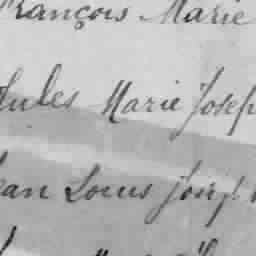 François Marie
Jules Marie Josep
Jean Louis Josep